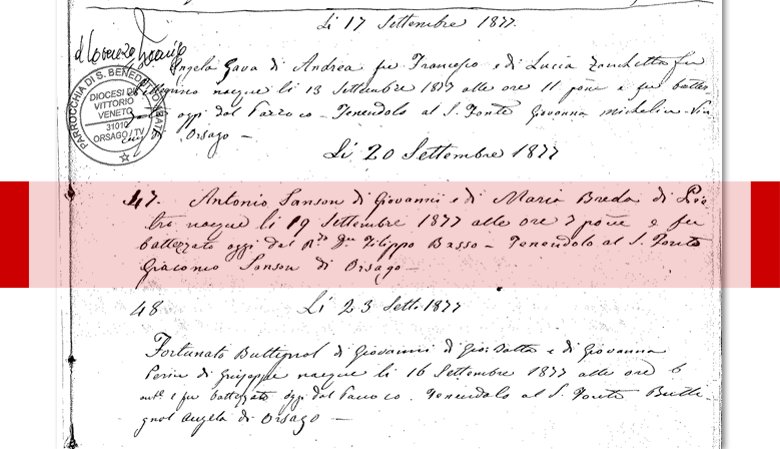 Li 17 Settembre 1877.
d. Lorenzo
Angela Gava di Andrea fu Francesco e di Lucia Zanchetta fu
nacque li 13 Settembre 1877 alle ore 11 pom e fu battez
oggi dal Parroco. Tenendolo al S. Fonte Giovanna Michelin
Orsago —
PARROCCHIA DI S. BENEDETTO ABATE
DIOCESI DI
VITTORIO
VENETO
31010
ORSAGO/TV
Li 20 Settembre 1877
47. Antonio Sanson di Giovanni e di Maria Breda di Pie
tro nacque li 19 Settembre 1877 alle ore 7 pom e fu
battezzato oggi dal Rdo Dn Filippo Basso – Tenendolo al S. Fonte
Giacomo Sanson di Orsago —
48 Li 23 Sett. 1877
Fortunato Buttignol di Giovanni di Gio: Batta e di Giovanna
di Giuseppe nacque li 16 Settembre 1877 alle ore 6
e fu battezzato oggi dal Parroco. Tenendolo al S. Fonte Butti
gnol Angela di Orsago —